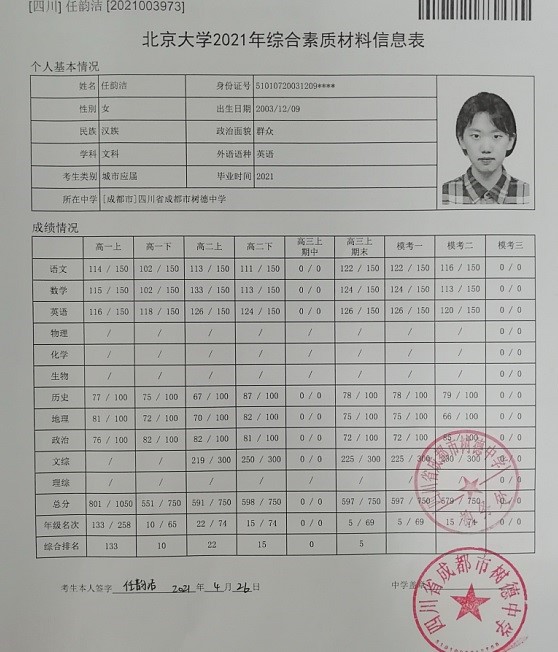 [四川] 任韵洁 [2021003973]
北京大学2021年综合素质材料信息表
个人基本情况
姓名 任韵洁 身份证号 51010720031209****
性别 女 出生日期 2003/12/09
民族 汉族 政治面貌 群众
学科 文科 外语语种 英语
考生类别 城市应届 毕业时间 2021
所在中学 [成都市]四川省成都市树德中学
成绩情况
高一上 高一下 高二上 高二下 高三上期中 高三上期末 模考一 模考二 模考三
语文 114 / 150 102 / 150 113 / 150 111 / 150 0 / 0 122 / 150 122 / 150 116 / 150 0 / 0
数学 115 / 150 102 / 150 133 / 150 113 / 150 0 / 0 124 / 150 124 / 150 113 / 150 0 / 0
英语 116 / 150 118 / 150 126 / 150 124 / 150 0 / 0 126 / 150 126 / 150 120 / 150 0 / 0
物理 / / / / / / / / 0 / 0
化学 / / / / / / / / 0 / 0
生物 / / / / / / / / 0 / 0
历史 77 / 100 75 / 100 67 / 100 87 / 100 0 / 0 78 / 100 78 / 100 79 / 100 0 / 0
地理 81 / 100 72 / 100 70 / 100 82 / 100 0 / 0 75 / 100 75 / 100 66 / 100 0 / 0
政治 76 / 100 82 / 100 82 / 100 81 / 100 0 / 0 72 / 100 72 / 100 85 / 100 0 / 0
文综 / / 219 / 300 250 / 300 0 / 0 225 / 300 225 / 300 230 / 300 0 / 0
理综 / / / / / / / / 0 / 0
总分 801 / 1050 551 / 750 591 / 750 598 / 750 0 / 0 597 / 750 597 / 750 579 / 750 0 / 0
年级名次 133 / 258 10 / 65 22 / 74 15 / 74 0 / 0 5 / 69 5 / 69 15 / 74 0 / 0
综合排名 133 10 22 15 0 5
考生本人签字 任韵洁 2021 年 4 月 26 日 中学
四川省成都市树德中学
四川省成都市树德中学